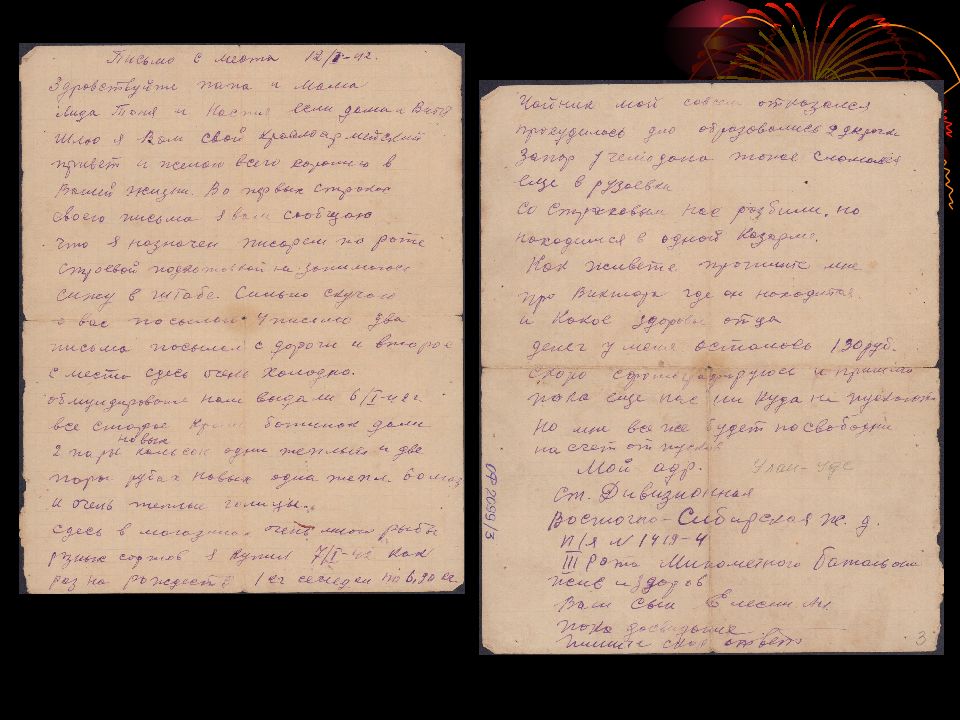 Письмо с места 12/I-42.
Здравствуйте папа и мама
Лида Тоня и Настя если дома и Витя
Шлю я Вам свой красноармейский
привет и желаю всего хорошего в
Вашей жизни. Во первых строках
своего письма я вам сообщаю
что я назначен писарем на роте
строевой подготовкой не занимаюсь
сижу в штабе. Сильно скучаю
о вас посылаю письмо два
письма послал с дороги и второе
с места здесь очень холодно.
обмундирование нам выдали 6/I-42г
все старое кроме ботинок дали
новых
2 пары кальсон одни теплые и две
пары рубах новых одна тепл.
и очень теплые
здесь в магазинах очень много рыбы
разных сортов я купил 7/I-42 как
раз на рождество 1 кг селедки по
Чайник мой совсем отказался
прохудилось дно образовались 2 дырочки
Запор у чемодана тоже сломался
еще в рузаевке
со Страховым нас разбили, но
находимся в одной казарме.
Как живете пропишите мне
про Виктора где он находится
и какое здоровье отца
денег у меня осталось 130 руб.
скоро и пришлю
пока еще нас ни куда не пускают
Но мне все же будет посвободней
на счет отпусков
Мой адр. Улан-Удэ
ст. Дивизионная
Восточно-Сибирская ж. д.
П/Я N 1419-4
III Рота Минометного батальона
жив и здоров
Ваш сын
пока досвидание
пишите скоро ответ
ОФ 2099/3
3